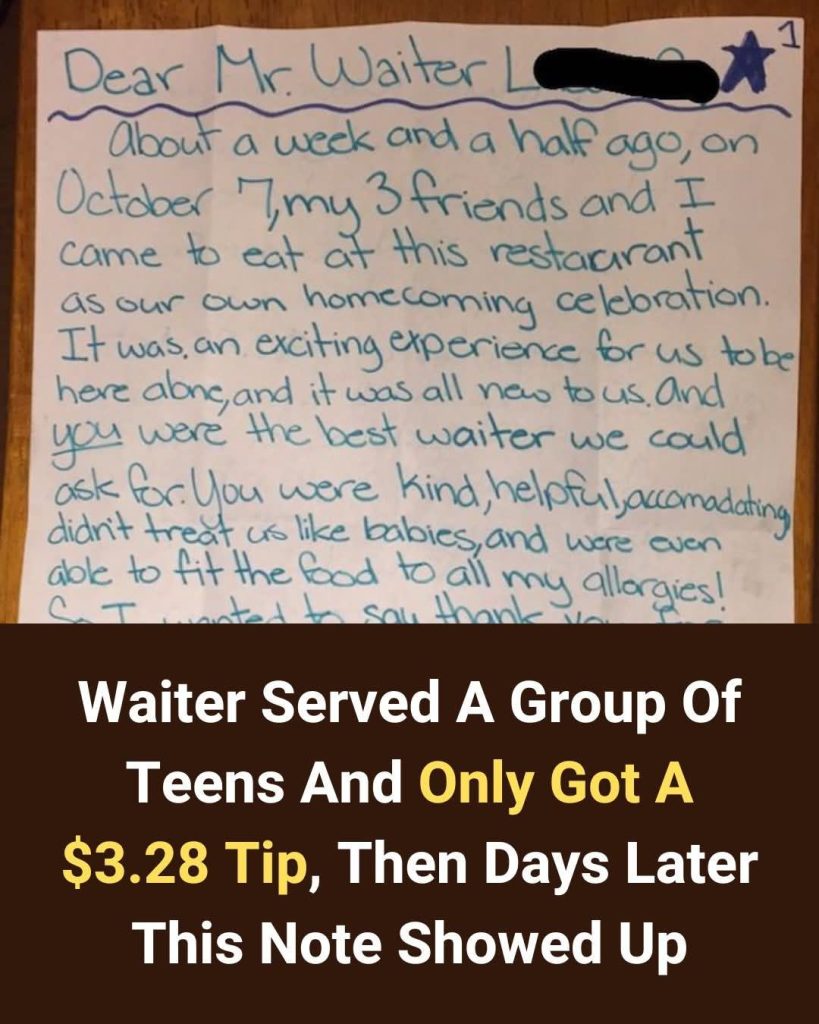 Dear Mr. Waiter L
1
About a week and a half ago, on
October 7, my 3 friends and I
came to eat at this restaurant
as our own homecoming celebration.
It was an exciting experience for us to be
here alone, and it was all new to us. And
you were the best waiter we could
ask for. You were kind, helpful, accomadating
didn't treat us like babies, and were even
able to fit the food to all my allergies!
So I wanted to say thank you for
Waiter Served A Group Of
Teens And Only Got A
$3.28 Tip, Then Days Later
This Note Showed Up